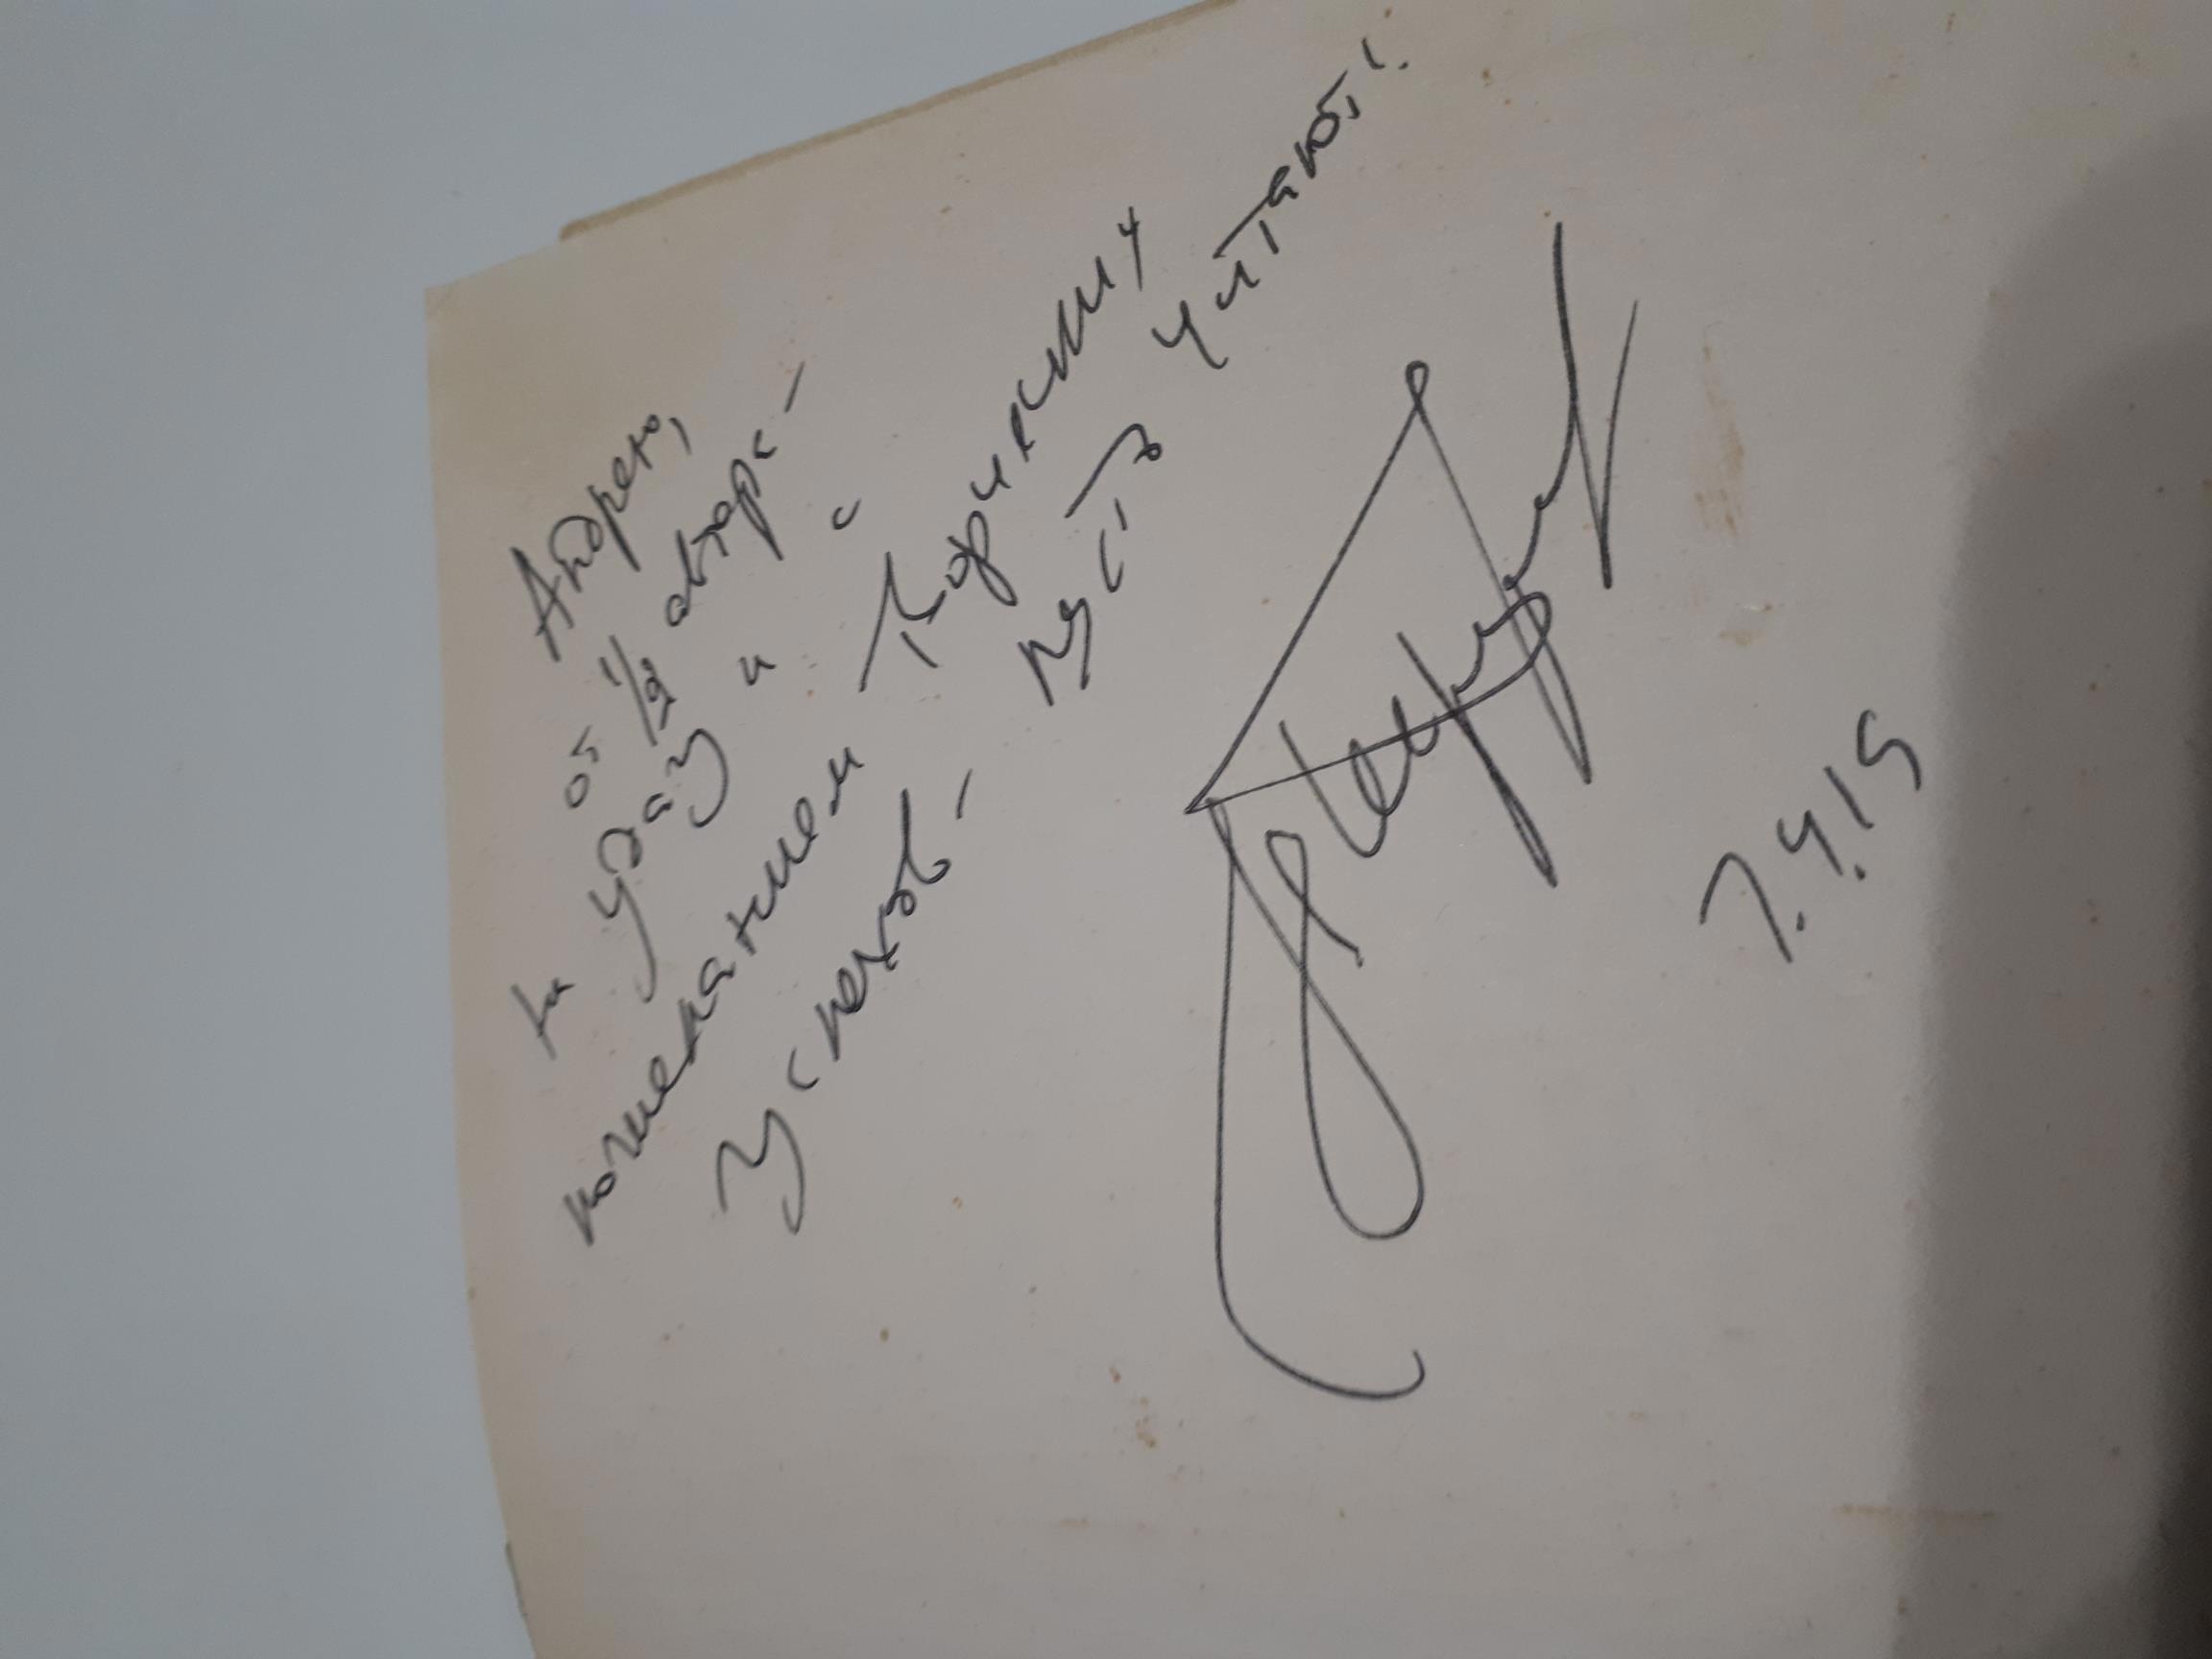 Андрею,
от 1/2 автора -
на удачу и с
пожеланием творческих
успехов - пусть читают.
7.4.19